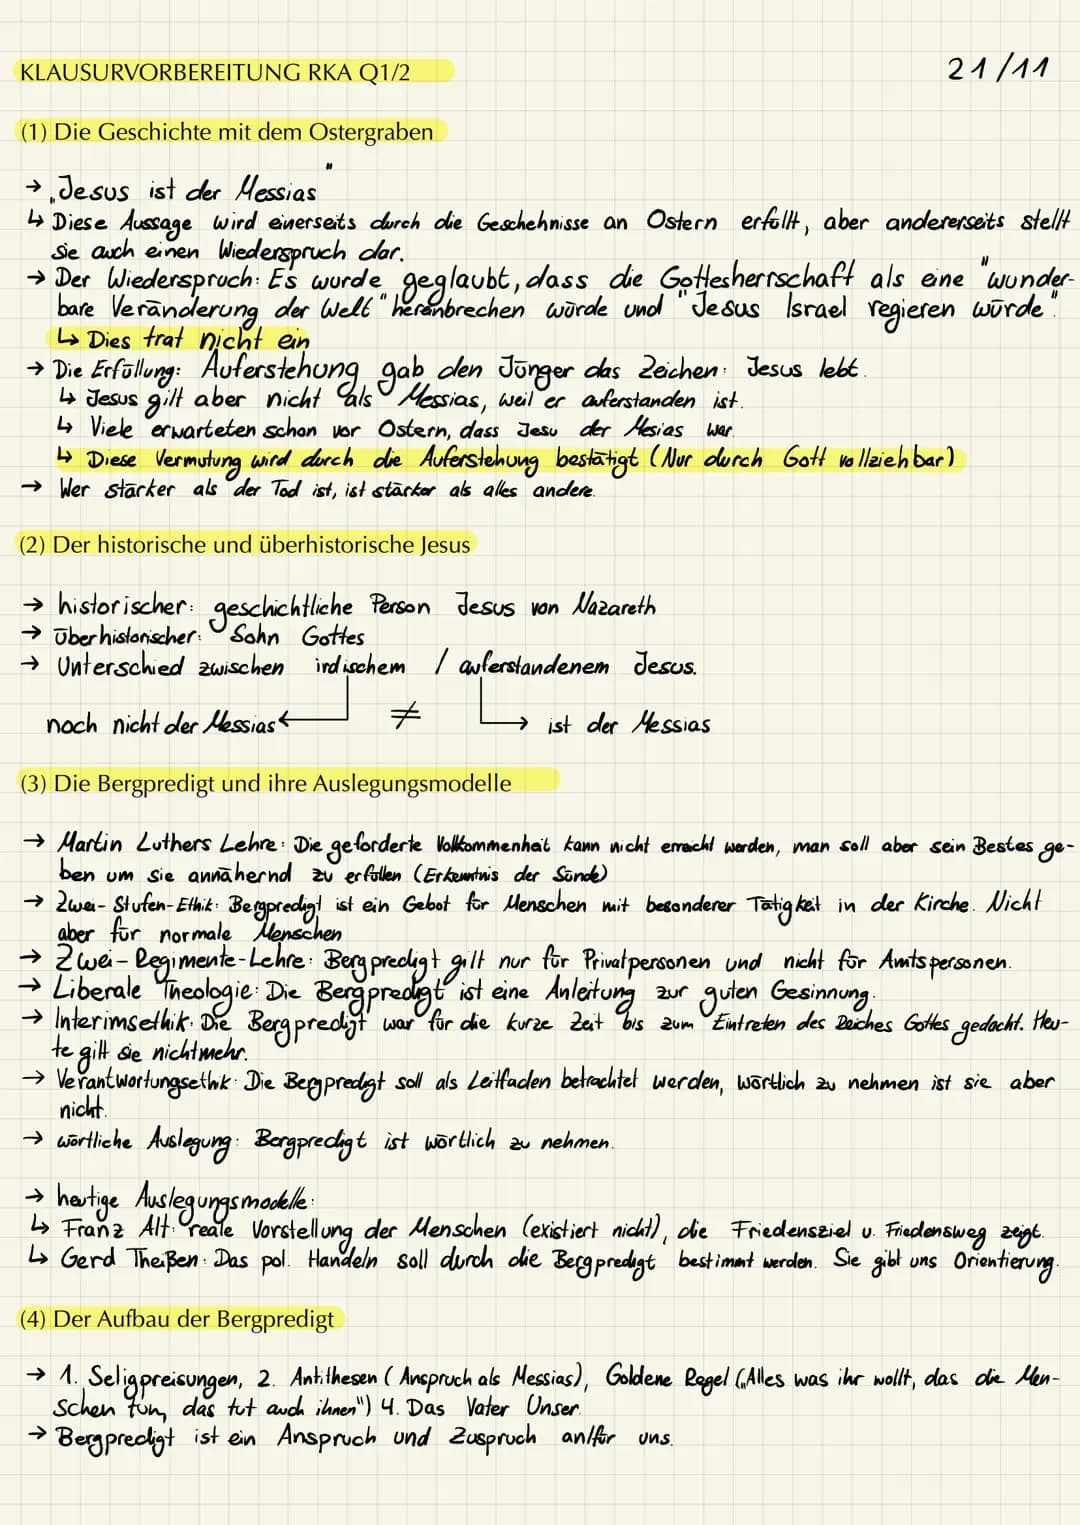 KLAUSURVORBEREITUNG RKA Q1/2
21/11
(1) Die Geschichte mit dem Ostergraben
→ „Jesus ist der Messias"
↳ Diese Aussage wird einerseits durch die Geschehnisse an Ostern erfüllt, aber andererseits stellt
sie auch einen Wiederspruch dar.
→ Der Wiederspruch: Es wurde geglaubt, dass die Gottesherrschaft als eine "wunder-
bare Veränderung der Welt" hereinbrechen würde und "Jesus Israel regieren würde".
↳ Dies trat nicht ein
→ Die Erfüllung: Auferstehung gab den Jünger das Zeichen: Jesus lebt.
↳ Jesus gilt aber nicht als Messias, weil er auferstanden ist.
↳ Viele erwarteten schon vor Ostern, dass Jesu der Mesias war.
↳ Diese Vermutung wird durch die Auferstehung bestätigt (Nur durch Gott vollziehbar)
→ Wer stärker als der Tod ist, ist stärker als alles andere.
(2) Der historische und überhistorische Jesus
→ historischer: geschichtliche Person Jesus von Nazareth
→ überhistorischer: Sohn Gottes
→ Unterschied zwischen irdischem / auferstandenem Jesus.
noch nicht der Messias ← ≠ → ist der Messias
(3) Die Bergpredigt und ihre Auslegungsmodelle
→ Martin Luthers Lehre: Die geforderte Vollkommenheit kann nicht erreicht werden, man soll aber sein Bestes ge-
ben um sie annähernd zu erfüllen (Erkenntnis der Sünde)
→ Zwei-Stufen-Ethik: Bergpredigt ist ein Gebot für Menschen mit besonderer Tätigkeit in der Kirche. Nicht
aber für normale Menschen
→ Zwei-Regimente-Lehre: Bergpredigt gilt nur für Privatpersonen und nicht für Amtspersonen.
→ Liberale Theologie: Die Bergpredigt ist eine Anleitung zur guten Gesinnung.
→ Interimsethik: Die Bergpredigt war für die kurze Zeit bis zum Eintreten des Reiches Gottes gedacht. Heu-
te gilt sie nicht mehr.
→ Verantwortungsethik: Die Bergpredigt soll als Leitfaden betrachtet werden, wörtlich zu nehmen ist sie aber
nicht.
→ wörtliche Auslegung: Bergpredigt ist wörtlich zu nehmen.
→ heutige Auslegungsmodelle:
↳ Franz Alt: reale Vorstellung der Menschen (existiert nicht), die Friedensziel u. Friedensweg zeigt.
↳ Gerd Theißen: Das pol. Handeln soll durch die Bergpredigt bestimmt werden. Sie gibt uns Orientierung.
(4) Der Aufbau der Bergpredigt
→ 1. Seligpreisungen, 2. Antithesen (Anspruch als Messias), Goldene Regel („Alles was ihr wollt, das die Men-
schen tun, das tut auch ihnen") 4. Das Vater Unser.
→ Bergpredigt ist ein Anspruch und Zuspruch an/für uns.